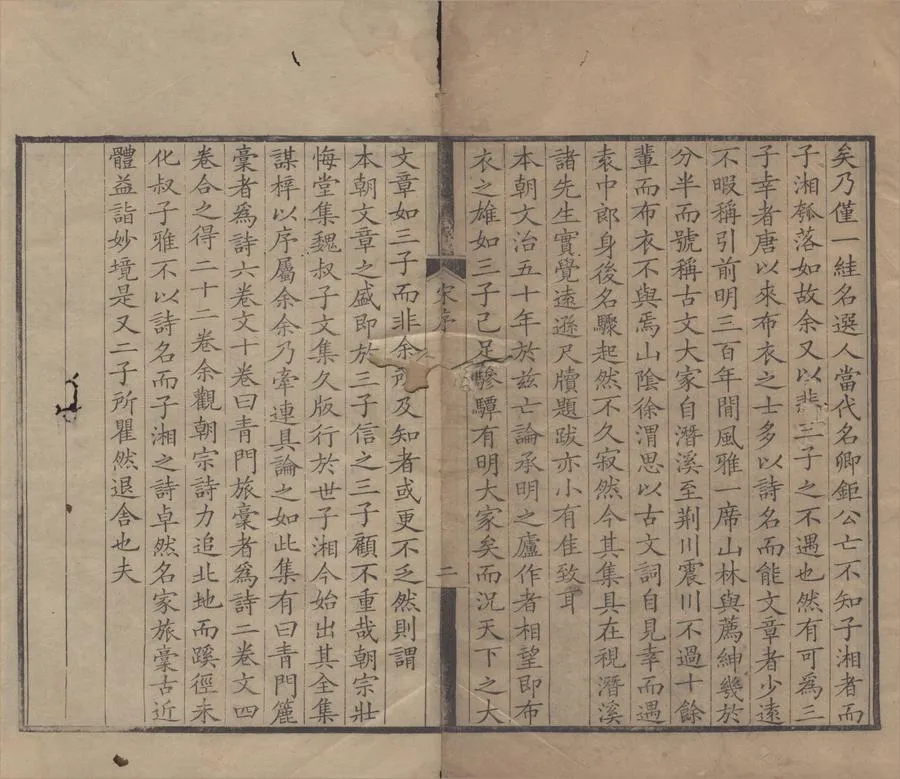 矣乃僅一絓名選人當代名卿鉅公亡不知子湘者而
子湘瓠落如故余又以悲三子之不遇也然有可為三
子幸者唐以來布衣之士多以詩名而能文章者少遠
不暇稱引前明三百年間風雅一席山林與薦紳幾於
分半而號稱古文大家自潛溪至荆川震川不過十餘
輩而布衣不與焉山陰徐渭思以古文詞自見幸而遇
袁中郎身後名驟起然不久寂然今其集具在視潛溪
諸先生實覺遠遜尺牘題跋亦小有佳致耳
本朝文治五十年於兹亡論承明之廬作者相望即布
衣之雄如三子已足驂驔有明大家矣而況天下之大
宋序
二
文章如三子而非余所及知者或更不乏然則謂
本朝文章之盛即於三子信之三子顧不重哉朝宗壯
悔堂集魏叔子文集久版行於世子湘今始出其全集
謀梓以序屬余余乃牽連具論之如此集有曰青門簏
稾者爲詩六卷文十卷曰青門旅稾者爲詩二卷文四
卷合之得二十二卷余觀朝宗詩力追北地而蹊徑未
化叔子雅不以詩名而子湘之詩卓然名家旅稾古近
體益詣妙境是又二子所瞿然退舍也夫